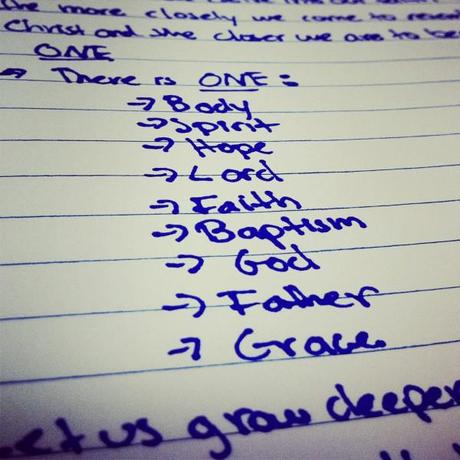 the more closely we come to
Christ and the closer we are to be
ONE
→ There is ONE:
→ Body
→ Spirit
→ Hope
→ Lord
→ Faith
→ Baptism
→ God
→ Father
→ Grace
Let us grow deeper